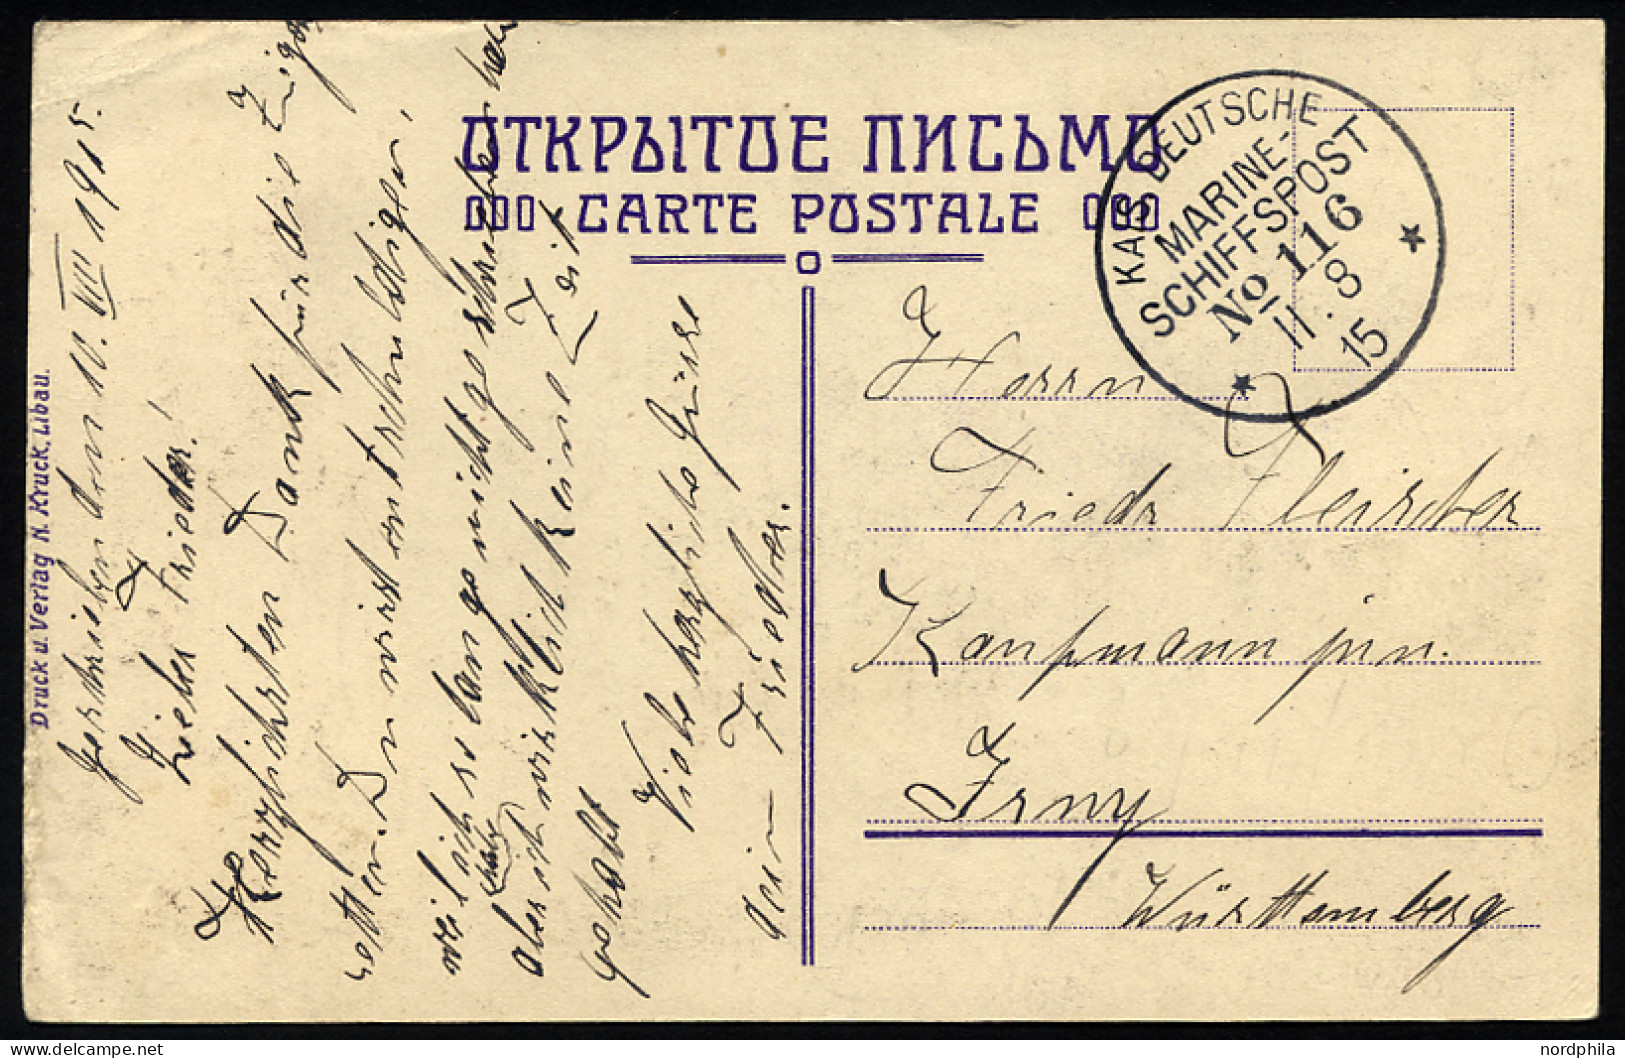 ОТКРЫТОЕ ПИСЬМО
CARTE POSTALE
KAIS. DEUTSCHE
MARINE-
SCHIFFSPOST
No 116
11. 8
15
Druck u. Verlag N. Kruck, Libau.
Geschrieben den 10. VIII 1915.
Lieber Frieder!
Herzlichsten Dank für die Zigar
retten. Du wirst entschuldigen,
weil ich so lange nicht geschrieben habe
aber ich habe wirklich keine Zeit
gehabt
Viele herzliche Grüsse
Frieder.
Herrn
Friedr Fleischer
Kaufmann jun.
Isny
Württemberg
nordphila.com